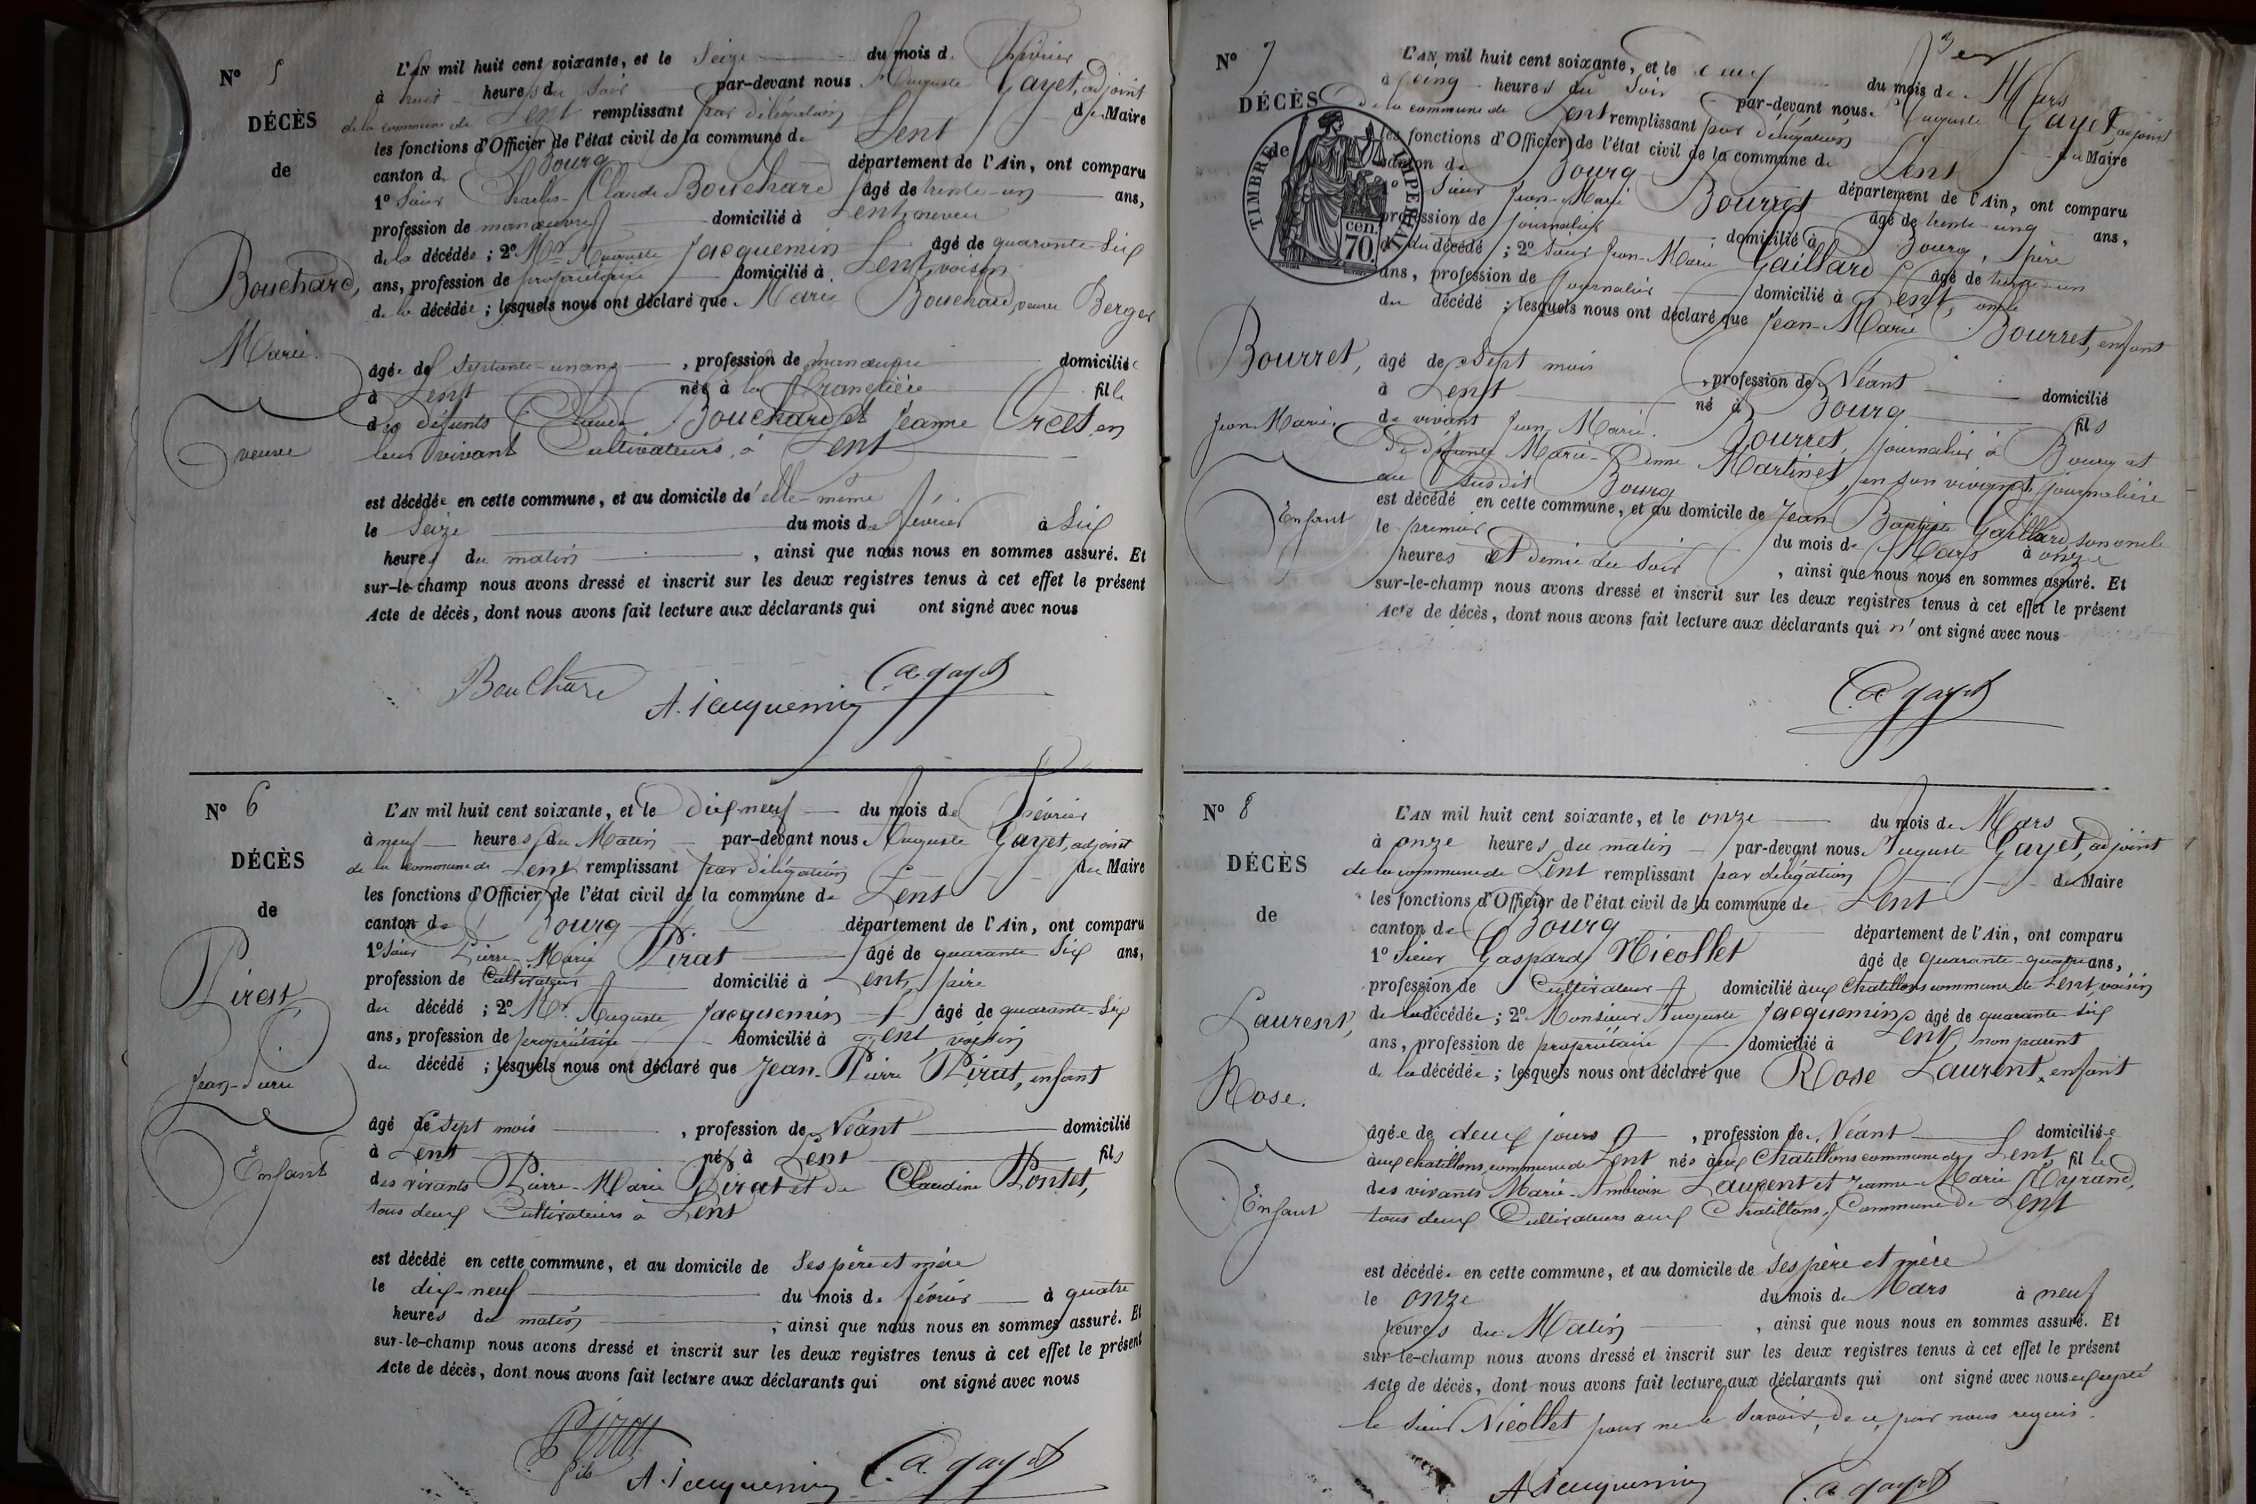 N° 5
DÉCÈS
de
Bouchard,
Marie.
veuve
L'AN mil huit cent soixante, et le Seize du mois de Février
à huit heures du Soir par-devant nous Auguste Gayet, adjoint
de la commune de Lent remplissant par délégation du Maire
les fonctions d'Officier de l'état civil de la commune de Lent
canton de Bourg département de l'Ain, ont comparu
1° Sieur Charles-Claude Bouchard âgé de trente-un ans,
profession de manœuvre domicilié à Lent, neveu
de la décédée ; 2° Mr Auguste Jacquemin âgé de quarante-Six
ans, profession de propriétaire domicilié à Lent, voisin
de la décédée ; lesquels nous ont déclaré que Marie Bouchard, veuve Berger
âgée de Septante-un ans, profession de domiciliée
à Lent née à la fille
des défunts Claude Bouchard et Jeanne en
leur vivant Cultivateurs, à Lent
est décédée en cette commune, et au domicile de elle-même
le Seize du mois de février à Six
heures du matin, ainsi que nous nous en sommes assuré. Et
sur-le-champ nous avons dressé et inscrit sur les deux registres tenus à cet effet le présent
Acte de décès, dont nous avons fait lecture aux déclarants qui ont signé avec nous
Bouchard A. Jacquemin C. A. gayet
N° 6
DÉCÈS
de
Pirat
Jean-Pierre
Enfant
L'AN mil huit cent soixante, et le Dix-neuf du mois de Février
à neuf heures du Matin par-devant nous Auguste Gayet, adjoint
de la commune de Lent remplissant par délégation du Maire
les fonctions d'Officier de l'état civil de la commune de Lent
canton de Bourg département de l'Ain, ont comparu
1° Sieur Pierre-Marie Pirat âgé de quarante-Six ans,
profession de Cultivateur domicilié à Lent, père
du décédé ; 2° Mr. Auguste Jacquemin âgé de quarante-Six
ans, profession de propriétaire domicilié à Lent, voisin
du décédé ; lesquels nous ont déclaré que Jean-Pierre Pirat, enfant
âgé de Sept mois, profession de Néant domicilié
à Lent né à Lent fils
des vivants Pierre-Marie Pirat et de Claudine Pontet,
tous deux Cultivateurs à Lent
est décédé en cette commune, et au domicile de Ses père et mère
le dix-neuf du mois de février à quatre
heures du matin, ainsi que nous nous en sommes assuré. Et
sur-le-champ nous avons dressé et inscrit sur les deux registres tenus à cet effet le présent
Acte de décès, dont nous avons fait lecture aux déclarants qui ont signé avec nous
Pirat
fils A. Jacquemin C. A. gayet
N° 7
DÉCÈS
de
TIMBRE IMPERIAL
70 cen.
Bourret,
Jean Marie.
Enfant
L'AN mil huit cent soixante, et le deux du mois de Mars
à Cinq heures du Soir par-devant nous Auguste Gayet, adjoint
de la commune de Lent remplissant par délégation du Maire
les fonctions d'Officier de l'état civil de la commune de Lent
canton de Bourg département de l'Ain, ont comparu
1° Sieur Jean-Marie Bourret âgé de trente-cinq ans,
profession de Journalier domicilié à Bourg, père
du décédé ; 2° Sieur Jean-Marie Gaillard âgé de trente-un
ans, profession de Journalier domicilié à Lent, oncle
du décédé ; lesquels nous ont déclaré que Jean-Marie Bourret, enfant
âgé de Sept mois, profession de Néant domicilié
à Lent né à Bourg fils
de vivant Jean Marie Bourret, journalier à Bourg et
de défunte Marie- Martinet, en son vivant journalière
au Susdit Bourg
est décédé en cette commune, et au domicile de Jean Baptiste Gaillard son oncle
le premier du mois de Mars à onze
heures et Demie du Soir, ainsi que nous nous en sommes assuré. Et
sur-le-champ nous avons dressé et inscrit sur les deux registres tenus à cet effet le présent
Acte de décès, dont nous avons fait lecture aux déclarants qui n'ont signé avec nous
C. A. gayet
N° 8
DÉCÈS
de
Laurent,
Rose.
Enfant
L'AN mil huit cent soixante, et le onze du mois de Mars
à onze heures du matin par-devant nous Auguste Gayet, adjoint
de la commune de Lent remplissant par délégation du Maire
les fonctions d'Officier de l'état civil de la commune de Lent
canton de Bourg département de l'Ain, ont comparu
1° Sieur Gaspard Nicollet âgé de quarante-quatre ans,
profession de Cultivateur domicilié aux Chatillons commune de Lent, voisin
de la décédée ; 2° Monsieur Auguste Jacquemin âgé de quarante-Six
ans, profession de propriétaire domicilié à Lent, non parent
de la décédée ; lesquels nous ont déclaré que Rose Laurent, enfant
âgée de deux jours, profession de Néant domiciliée
aux Chatillons, commune de Lent née aux Chatillons commune de Lent fille
des vivants Marie-Ambroise Laurent et Jeanne-Marie
tous deux Cultivateurs aux Chatillons, Commune de Lent
est décédée en cette commune, et au domicile de Ses père et mère
le onze du mois de Mars à neuf
heures du Matin, ainsi que nous nous en sommes assuré. Et
sur-le-champ nous avons dressé et inscrit sur les deux registres tenus à cet effet le présent
Acte de décès, dont nous avons fait lecture aux déclarants qui ont signé avec nous excepté
le Sieur Nicollet pour ne le Savoir, de ce par nous requis.
A Jacquemin C. A gayet